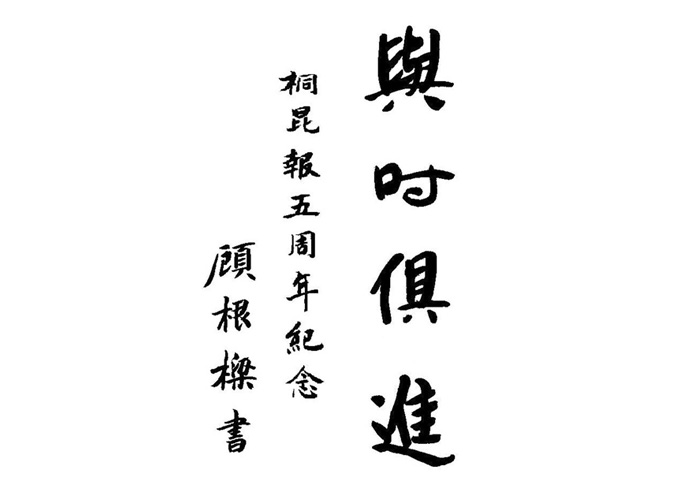 與时俱進
桐昆報五周年紀念
顾根樑書